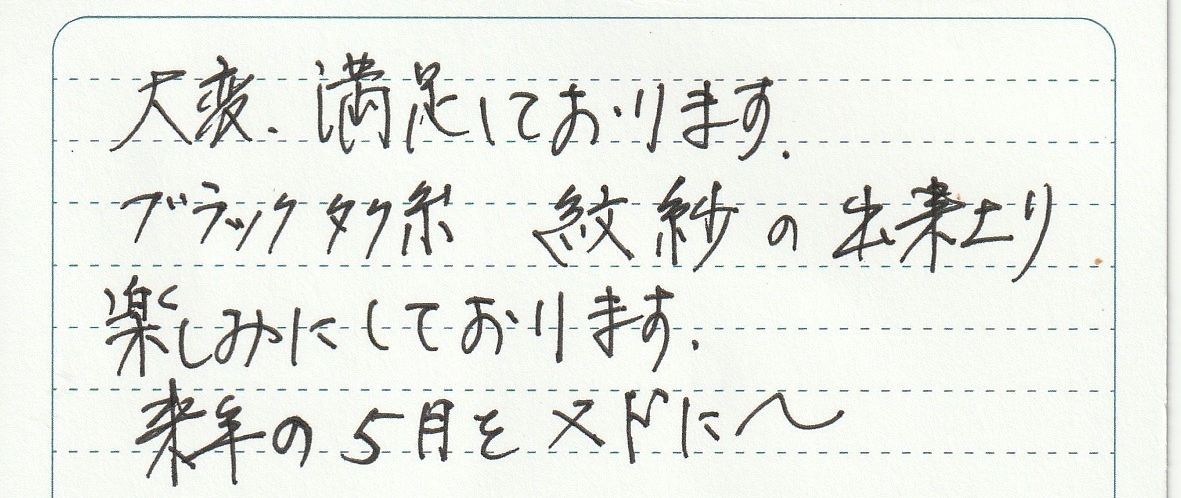 大変、満足しております.
ブラックタク糸 紋紗の出来上り
楽しみにしております.
来年の5月をメドに〜